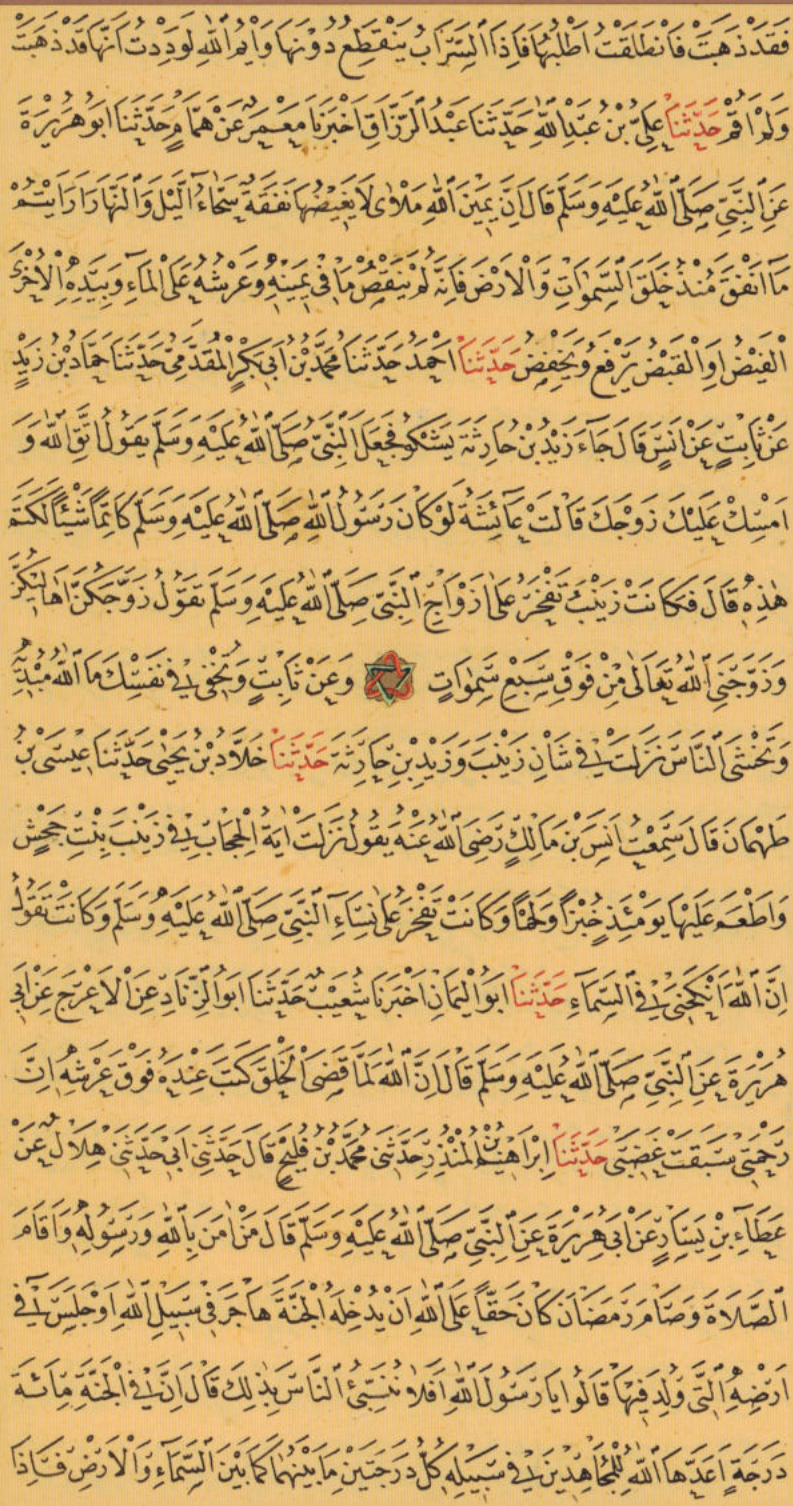 فَقَدْ ذَهَبَتْ فَانْطَلَقْتُ اَطْلُبُهَا فَاِذَا السَّرَابُ يَنْقَطِعُ دُوْنَهَا وَاَيْمُ اللّٰهِ لَوَدِدْتُ اَنَّهَا قَدْ ذَهَبَتْ
وَلَمْ اَقُمْ حَدَّثَنَا عَلِيُّ بْنُ عَبْدِ اللّٰهِ حَدَّثَنَا عَبْدُ الرَّزَّاقِ اَخْبَرَنَا مَعْمَرٌ عَنْ هَمَّامٍ حَدَّثَنَا اَبُو هُرَيْرَةَ
عَنِ النَّبِيِّ صَلَّى اللّٰهُ عَلَيْهِ وَسَلَّمَ قَالَ اِنَّ يَمِيْنَ اللّٰهِ مَلْاٰى لَا يَغِيْضُهَا نَفَقَةٌ سَحَّاءُ الَّيْلَ وَالنَّهَارَ اَرَاَيْتُمْ
مَا اَنْفَقَ مُنْذُ خَلَقَ السَّمٰوَاتِ وَالْاَرْضَ فَاِنَّهُ لَمْ يَنْقُصْ مَا فِي يَمِيْنِهِ وَعَرْشُهُ عَلَى الْمَاءِ وَبِيَدِهِ الْاُخْرٰى
الْفَيْضُ اَوِ الْقَبْضُ يَرْفَعُ وَيَخْفِضُ حَدَّثَنَا اَحْمَدُ حَدَّثَنَا مُحَمَّدُ بْنُ اَبِي بَكْرٍ الْمُقَدَّمِيُّ حَدَّثَنَا حَمَّادُ بْنُ زَيْدٍ
عَنْ ثَابِتٍ عَنْ اَنَسٍ قَالَ جَاءَ زَيْدُ بْنُ حَارِثَةَ يَشْكُو فَجَعَلَ النَّبِيُّ صَلَّى اللّٰهُ عَلَيْهِ وَسَلَّمَ يَقُوْلُ اتَّقِ اللّٰهَ وَ
اَمْسِكْ عَلَيْكَ زَوْجَكَ قَالَتْ عَائِشَةُ لَوْ كَانَ رَسُوْلُ اللّٰهِ صَلَّى اللّٰهُ عَلَيْهِ وَسَلَّمَ كَاتِمًا شَيْئًا لَكَتَمَ
هٰذِهِ قَالَ فَكَانَتْ زَيْنَبُ تَفْخَرُ عَلٰى اَزْوَاجِ النَّبِيِّ صَلَّى اللّٰهُ عَلَيْهِ وَسَلَّمَ تَقُوْلُ زَوَّجَكُنَّ اَهَالِيْكُنَّ
وَزَوَّجَنِيَ اللّٰهُ تَعَالٰى مِنْ فَوْقِ سَبْعِ سَمٰوَاتٍ وَعَنْ ثَابِتٍ وَتُخْفِي فِي نَفْسِكَ مَا اللّٰهُ مُبْدِيْهِ
وَتَخْشَى النَّاسَ نَزَلَتْ فِي شَاْنِ زَيْنَبَ وَزَيْدِ بْنِ حَارِثَةَ حَدَّثَنَا خَلَّادُ بْنُ يَحْيٰى حَدَّثَنَا عِيْسَى بْنُ
طَهْمَانَ قَالَ سَمِعْتُ اَنَسَ بْنَ مَالِكٍ رَضِيَ اللّٰهُ عَنْهُ يَقُوْلُ نَزَلَتْ اٰيَةُ الْحِجَابِ فِي زَيْنَبَ بِنْتِ جَحْشٍ
وَاَطْعَمَ عَلَيْهَا يَوْمَئِذٍ خُبْزًا وَلَحْمًا وَكَانَتْ تَفْخَرُ عَلٰى نِسَاءِ النَّبِيِّ صَلَّى اللّٰهُ عَلَيْهِ وَسَلَّمَ وَكَانَتْ تَقُوْلُ
اِنَّ اللّٰهَ اَنْكَحَنِي فِي السَّمَاءِ حَدَّثَنَا اَبُو الْيَمَانِ اَخْبَرَنَا شُعَيْبٌ حَدَّثَنَا اَبُو الزِّنَادِ عَنِ الْاَعْرَجِ عَنْ اَبِي
هُرَيْرَةَ عَنِ النَّبِيِّ صَلَّى اللّٰهُ عَلَيْهِ وَسَلَّمَ قَالَ اِنَّ اللّٰهَ لَمَّا قَضَى الْخَلْقَ كَتَبَ عِنْدَهُ فَوْقَ عَرْشِهِ اِنَّ
رَحْمَتِي سَبَقَتْ غَضَبِي حَدَّثَنَا اِبْرَاهِيْمُ بْنُ الْمُنْذِرِ حَدَّثَنِي مُحَمَّدُ بْنُ فُلَيْحٍ قَالَ حَدَّثَنِي اَبِي حَدَّثَنِي هِلَالٌ عَنْ
عَطَاءِ بْنِ يَسَارٍ عَنْ اَبِي هُرَيْرَةَ عَنِ النَّبِيِّ صَلَّى اللّٰهُ عَلَيْهِ وَسَلَّمَ قَالَ مَنْ اٰمَنَ بِاللّٰهِ وَرَسُوْلِهِ وَاَقَامَ
الصَّلَاةَ وَصَامَ رَمَضَانَ كَانَ حَقًّا عَلَى اللّٰهِ اَنْ يُدْخِلَهُ الْجَنَّةَ هَاجَرَ فِي سَبِيْلِ اللّٰهِ اَوْ جَلَسَ فِي
اَرْضِهِ الَّتِي وُلِدَ فِيْهَا قَالُوا يَا رَسُوْلَ اللّٰهِ اَفَلَا نُنَبِّئُ النَّاسَ بِذٰلِكَ قَالَ اِنَّ فِي الْجَنَّةِ مِائَةَ
دَرَجَةٍ اَعَدَّهَا اللّٰهُ لِلْمُجَاهِدِيْنَ فِي سَبِيْلِهِ كُلُّ دَرَجَتَيْنِ مَا بَيْنَهُمَا كَمَا بَيْنَ السَّمَاءِ وَالْاَرْضِ فَاِذَا